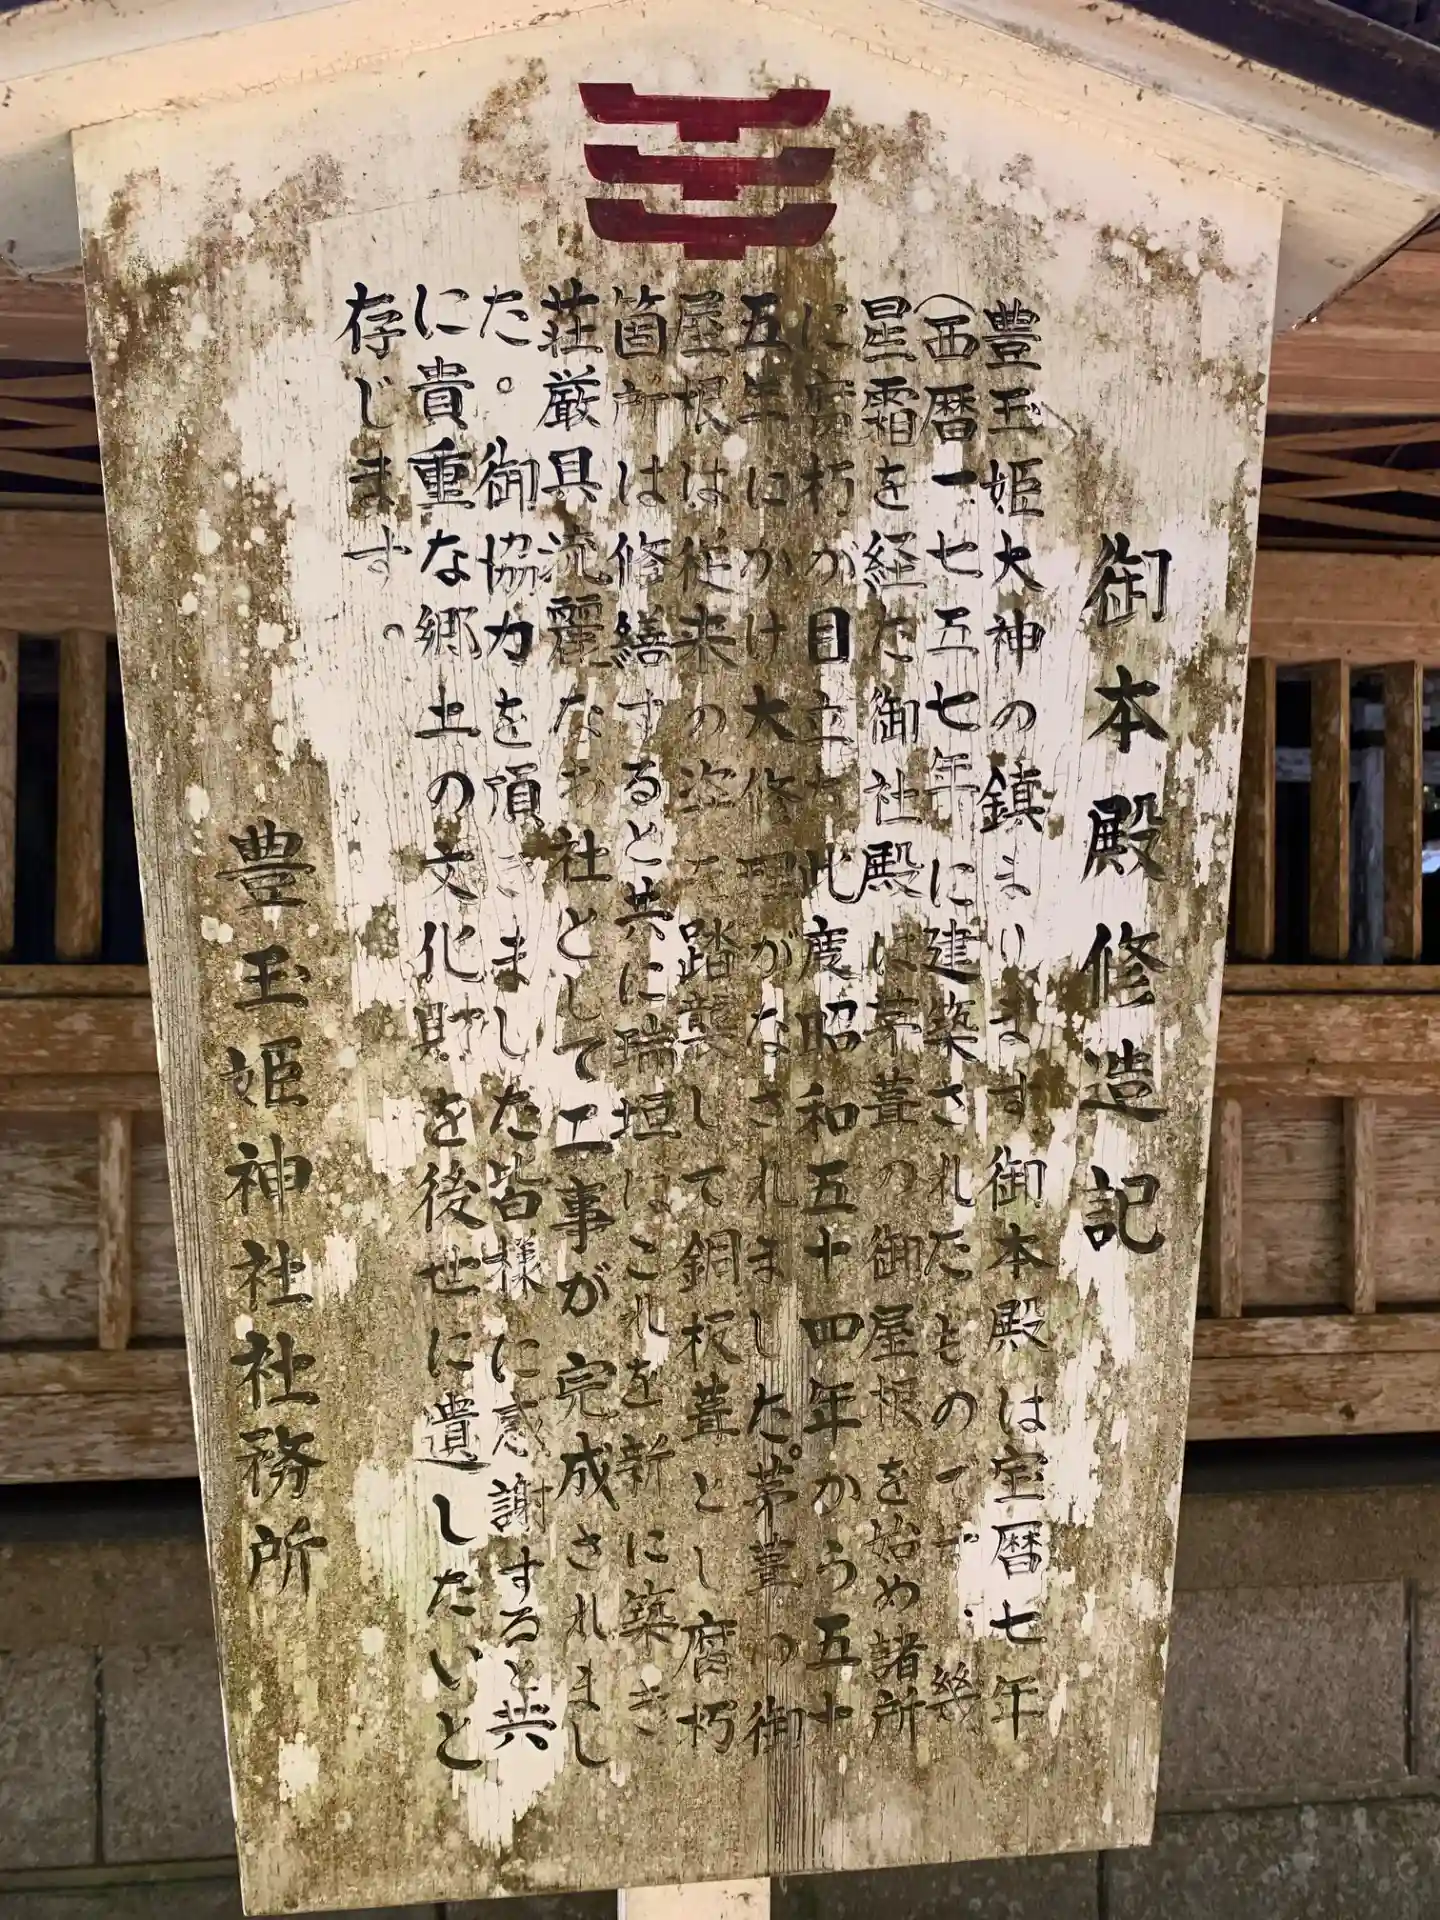 御本殿修造記
豊玉姫大神の鎮まります御本殿は宝暦七年
(西暦一七五七年に建築されたものです。幾
星霜を経た御社殿は茅葺の御屋根を始め諸所
に腐朽が目立ち此度昭和五十四年から五十
五年にかけ大修理がなされました。茅葺の御
屋根は従来の姿を踏襲して銅板葺とし腐朽
箇所は修繕すると共に瑞垣はこれを新に築き
荘厳具流麗なお社として工事が完成されまし
た。御協力を頂きました皆様に感謝すると共
に貴重な郷土の文化財を後世に遺したいと
存じます。
豊玉姫神社社務所